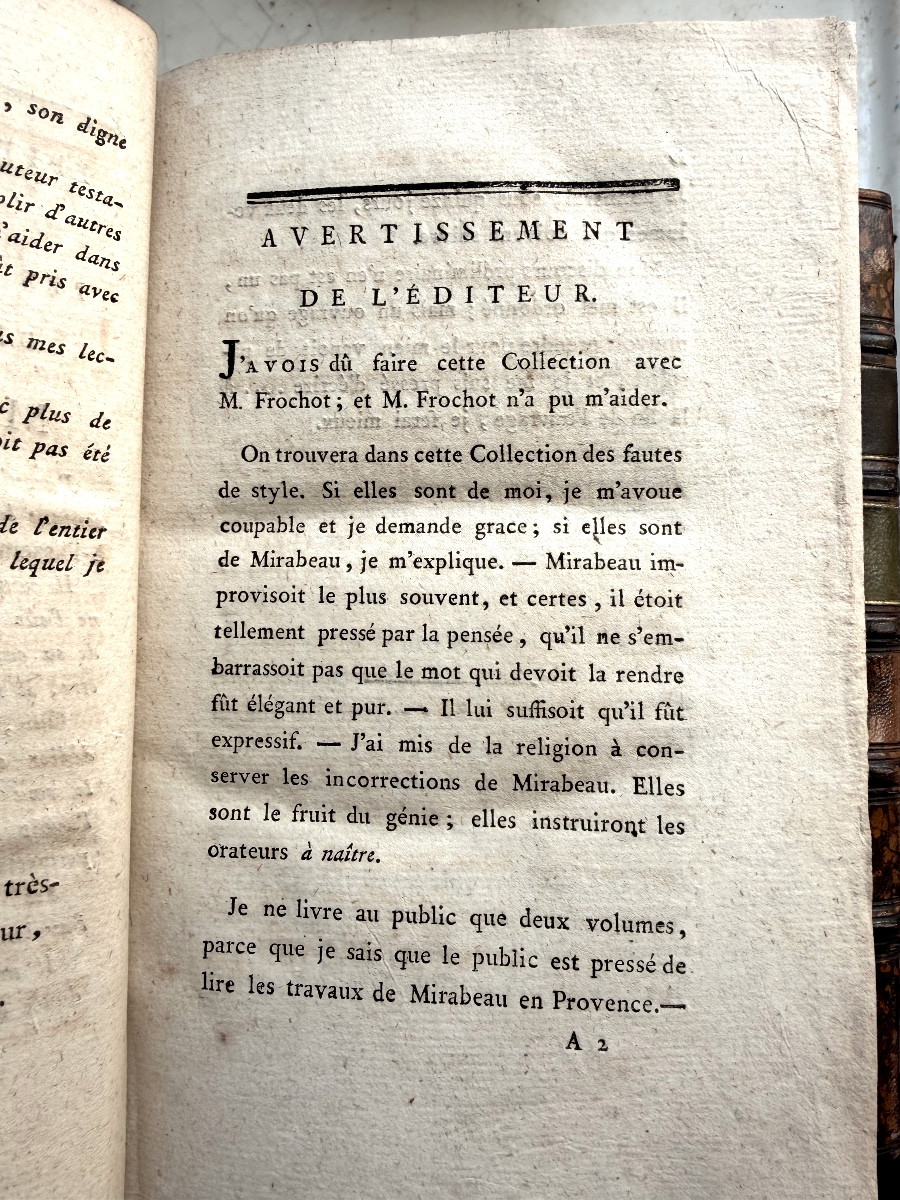 , son digne
uteur testa-
plir d'autres
l'aider dans
ût pris avec
s mes lec-
c plus de
oit pas été
de l'entier
lequel je
très-
ur,
.
AVERTISSEMENT
DE L'ÉDITEUR.
J'AVOIS dû faire cette Collection avec
M. Frochot; et M. Frochot n'a pu m'aider.
On trouvera dans cette Collection des fautes
de style. Si elles sont de moi, je m'avoue
coupable et je demande grace; si elles sont
de Mirabeau, je m'explique. — Mirabeau im-
provisoit le plus souvent, et certes, il étoit
tellement pressé par la pensée, qu'il ne s'em-
barrassoit pas que le mot qui devoit la rendre
fût élégant et pur. — Il lui suffisoit qu'il fût
expressif. — J'ai mis de la religion à con-
server les incorrections de Mirabeau. Elles
sont le fruit du génie; elles instruiront les
orateurs à naître.
Je ne livre au public que deux volumes,
parce que je sais que le public est pressé de
lire les travaux de Mirabeau en Provence.—
A 2